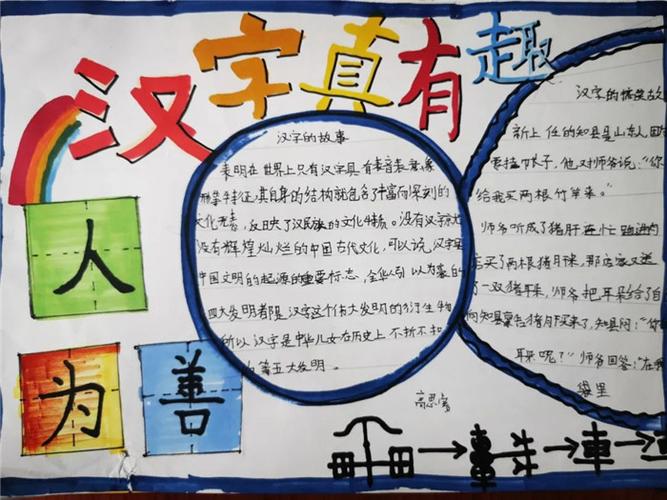 汉字真有趣
汉字的故事
表明在世界上只有汉字具有表音表意像
形等特征,其自身的结构就包含了丰富而深刻的
文化
反映了汉民族的文化特质。没有汉字
没有辉煌灿烂的中国古代文化,可以说,汉字是
中国文明的起源的重要标志,
四大发明都是汉字这个伟大发明的衍生物
所以汉字是中华儿女在历史上不折不扣
第五大发明。
高思
汉字的搞笑故
新上任的知县是山东人,因
要挂帐子,他对师爷说:“你
给我买两根竹竿来。”
师爷听成了猪肝连忙跑进肉
店买了两根猪肝来,那店家又送
了一双猪耳朵,师爷把耳朵给了自
向知县禀告猪肝买来了,知县问:“你
耳朵呢?”师爷回答:“在我
袋里
人
为
善
車